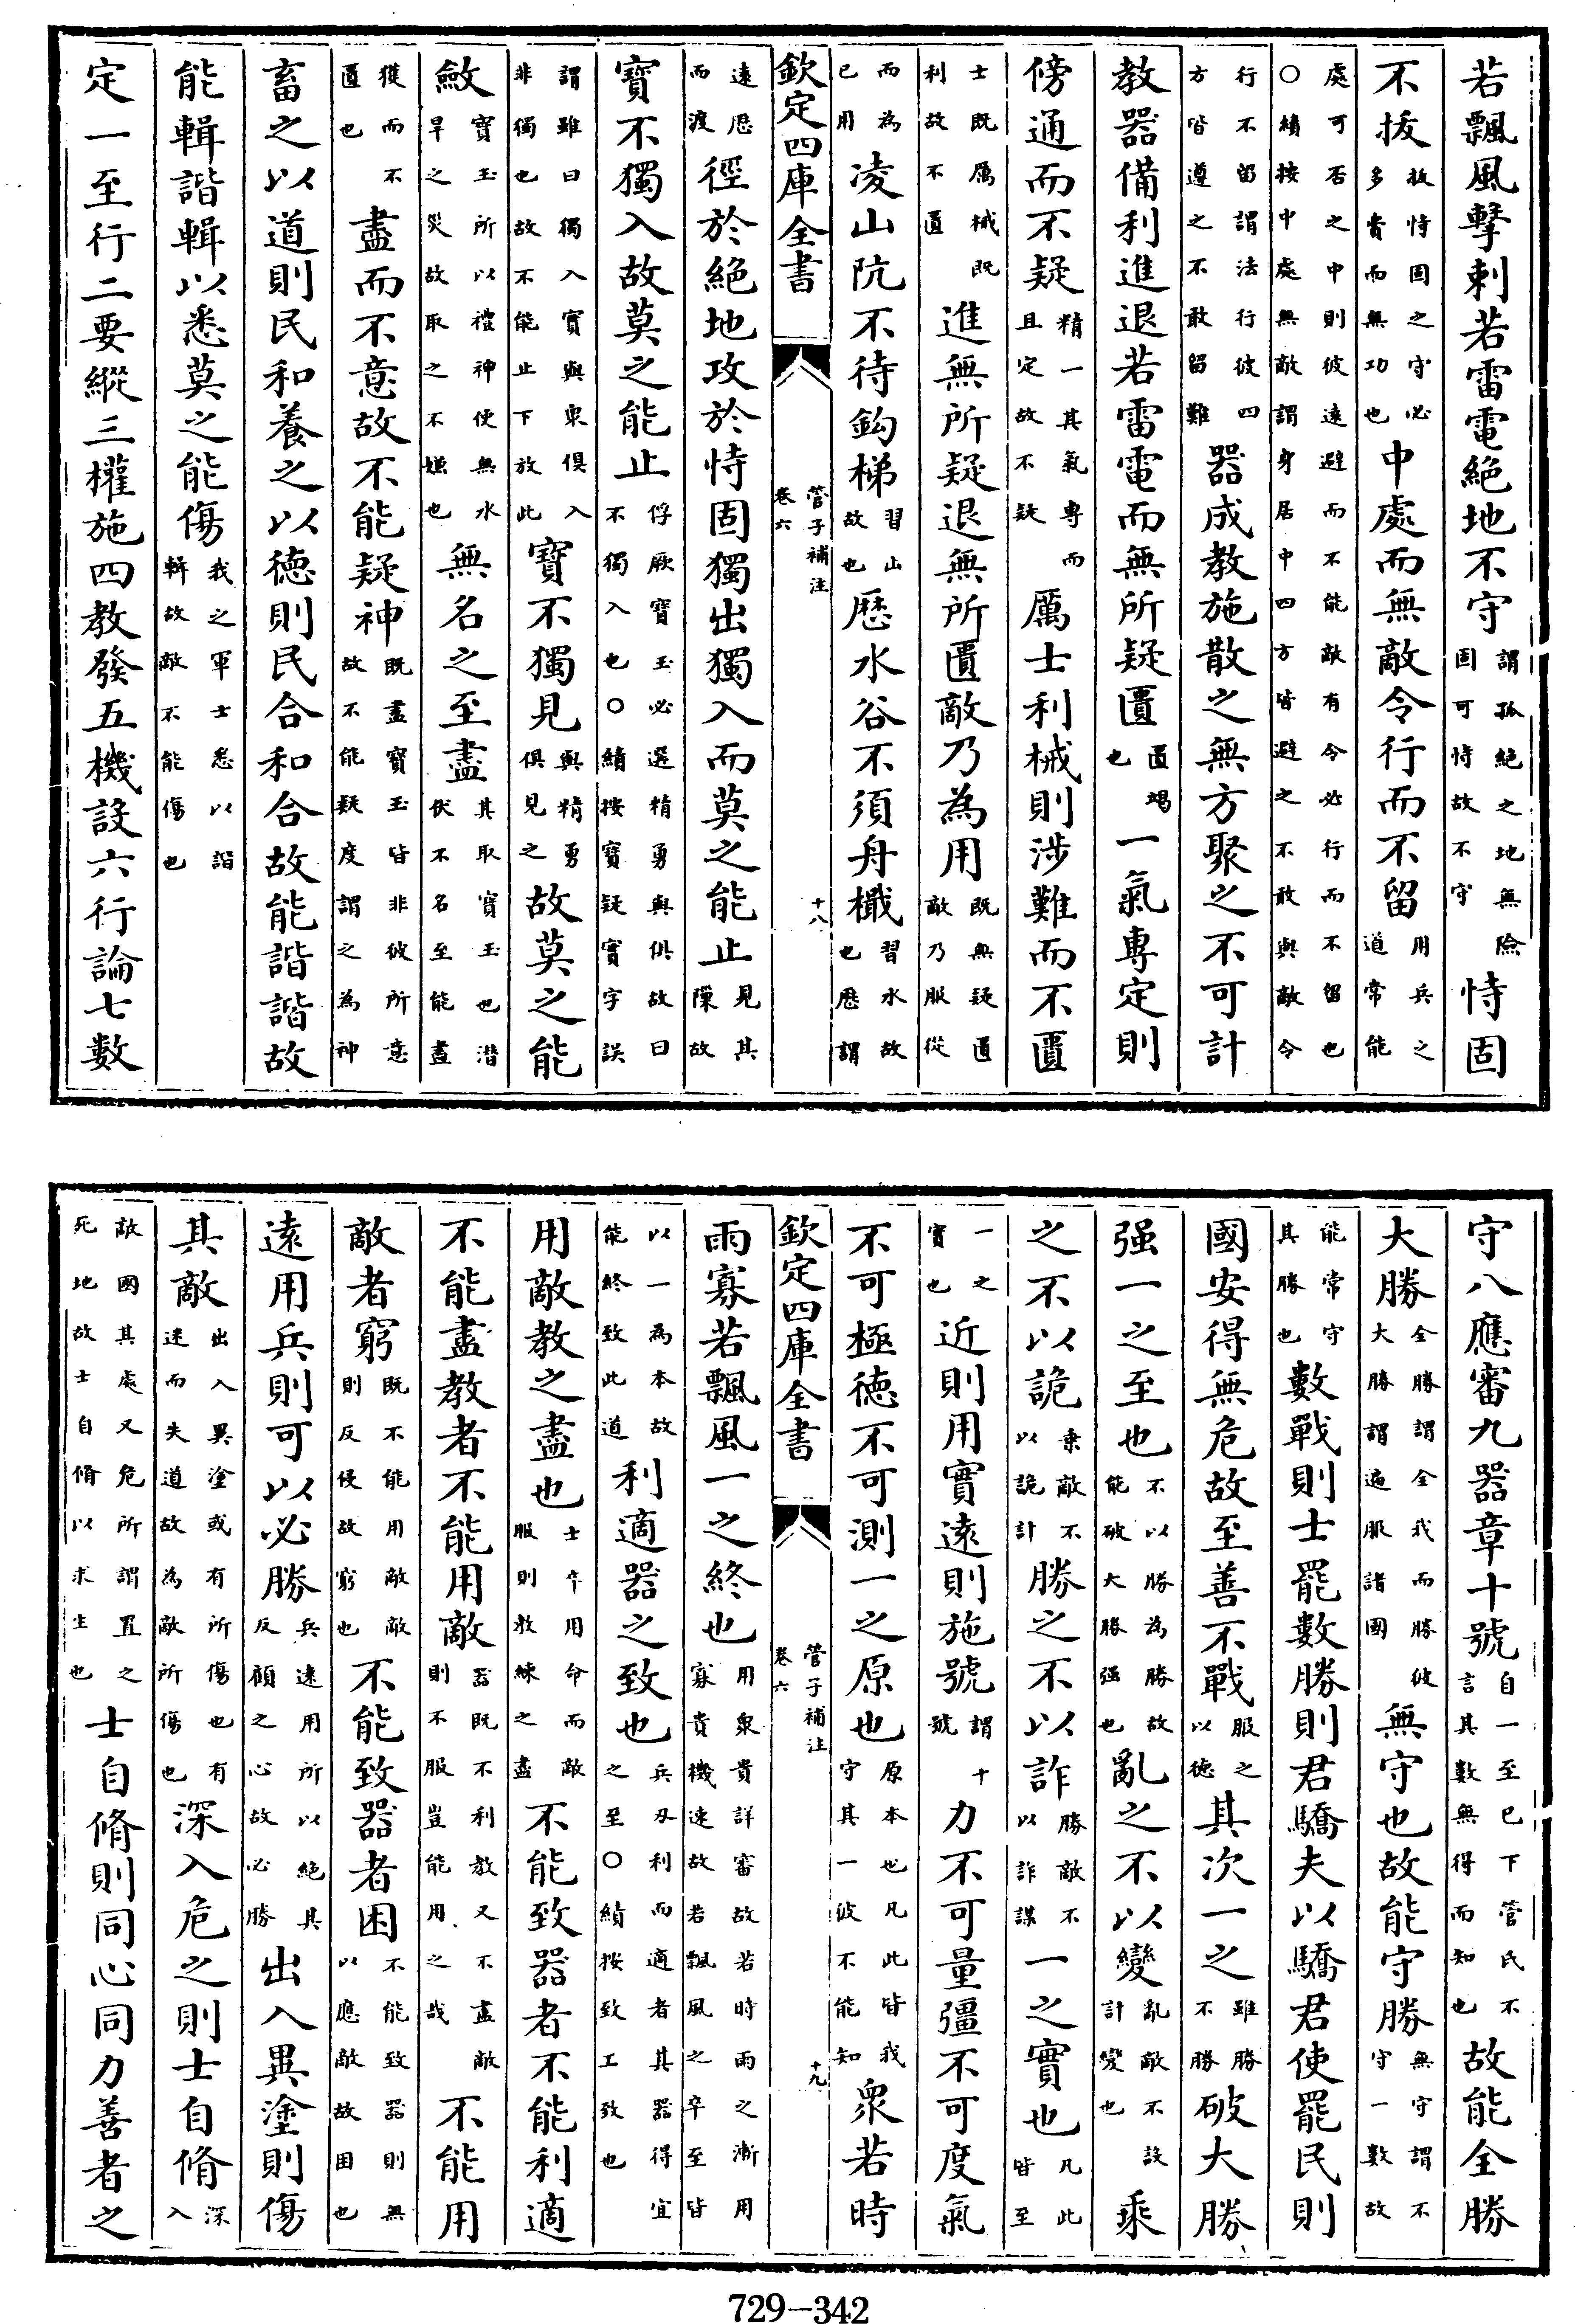 若飄風擊刺若雷電絶地不守謂孤絶之地無險固可恃故不守恃固
不拔多賁而無功也拔恃固之守必中處而無敵令行而不留用兵之道常能
處可否之中則彼遠避而不能敵有令必行而不留也○績按中處無敵謂身居中四方皆避之不敢與敵令
行不留謂法行彼四方皆遵之不敢留難器成教施散之無方聚之不可計
教器備利進退若雷電而無所疑匱匱竭也一氣專定則
傍通而不疑精一其氣專而且定故不疑厲士利械則涉難而不匱
士既厲械既利故不匱進無所疑退無所匱敵乃為用既無疑匱敵乃服從
而為已用凌山阬不待鈎梯習山故也歴水谷不須舟檝習水故也歴謂
欽定四庫全書 管子補注 卷六 十八
遠歴而渡徑於絶地攻於恃固獨出獨入而莫之能止見其隟故
寳不獨入故莫之能止俘厥寳玉必選精勇與俱故曰不獨入也○績按寳疑實字誤
謂雖曰獨入實與衆俱入非獨也故不能止下放此寳不獨見與精勇俱見之故莫之能
斂謂寳玉所以禮神使無水旱之災故取之不嫌也無名之至盡其取寳玉也潜伏不名至能盡
獲而不匱也盡而不意故不能疑神既盡寳玉皆非彼所意故不能疑度謂之為神
畜之以道則民和養之以徳則民合和合故能諧諧故
能輯諧輯以悉莫之能傷我之軍士悉以諧輯故敵不能傷也
定一至行二要縱三權施四教發五機設六行論七數
守八應審九器章十號自一至已下管氏不言其數無得而知也故能全勝
大勝全勝謂全我而勝彼大勝謂遍服諸國無守也故能守勝無守謂不守一數故
能常守其勝也數戰則士罷數勝則君驕夫以驕君使罷民則
國安得無危故至善不戰服之以徳其次一之雖勝不勝破大勝
强一之至也不以勝為勝故能破大勝强也亂之不以變亂敵不設計變也乘
之不以詭乘敵不以詭計勝之不以詐勝敵不以詐謀一之實也凡此皆至
一之實也近則用實遠則施號謂十號力不可量彊不可度氣
不可極徳不可測一之原也原本也凡此皆我守其一彼不能知衆若時
欽定四庫全書 管子補注 卷六 十九
雨寡若飄風一之終也用衆貴詳審故若時雨之漸用寡貴機速故若飄風之卒至皆
以一為本故能終致此道利適器之致也兵刃利而適者其器得宜之至○績按致工致也
用敵教之盡也士卒用命而敵服則教練之盡不能致器者不能利適
不能盡教者不能用敵器既不利教又不盡敵則不服豈能用之哉不能用
敵者窮既不能用敵敵則反侵故窮也不能致器者困不能致器則無以應敵故困也
遠用兵則可以必勝兵遠用所以絶其反顧之心故必勝出入異塗則傷
其敵出入異塗或有所傷也有迷而失道故為敵所傷也深入危之則士自脩深入
敵國其處又危所謂置之死地故士自脩以求生也士自脩則同心同力善者之
729—342